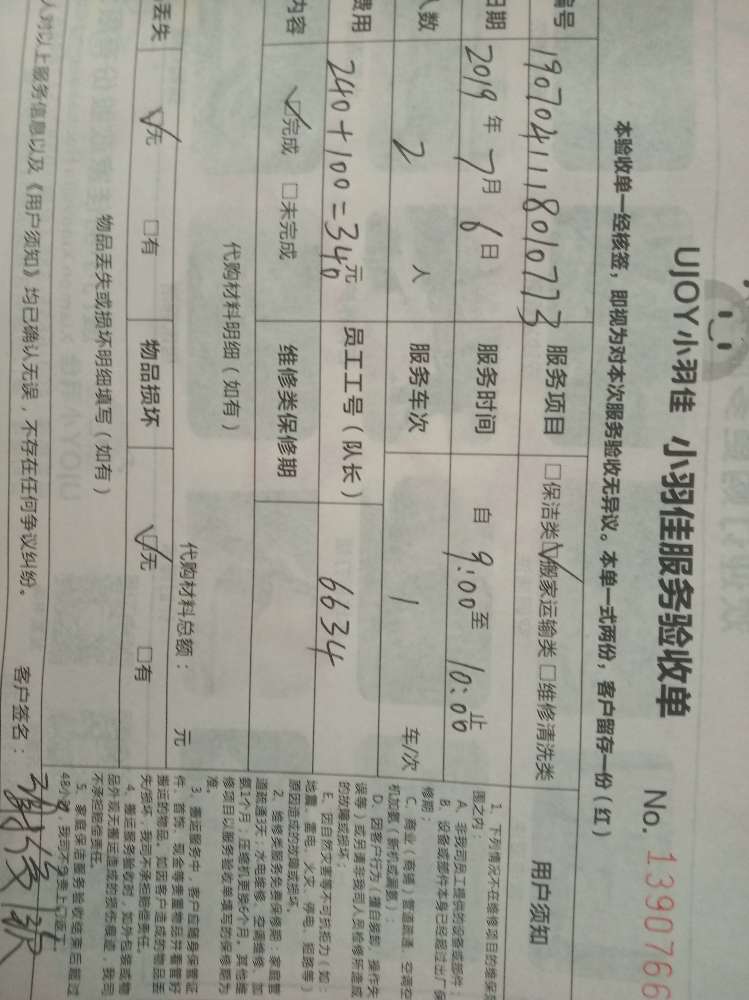 UJOY小羽佳 小羽佳服务验收单 No. 1390766
本验收单一经核签，即视为对本次服务验收无异议。本单一式两份，客户留存一份（红）
编号 1907041118010773 服务项目 □保洁类 ☑搬家运输类 □维修清洗类
日期 2019年7月6日 服务时间 自 9:00 至 10:00 止
人数 2 人 服务车次 1 车/次
费用 240+100=340元 员工工号（队长） 6634
内容 ☑完成 □未完成 维修类保修期
代购材料明细（如有）
代购材料总额： 元
丢失 ☑无 □有 物品损坏 ☑无 □有
物品丢失或损坏明细填写（如有）
人对以上服务信息以及《用户须知》均已确认无误，不存在任何争议纠纷。 客户签名：
用户须知
1、下列情况不在维修项目的维保范
围之内：
A、非我司员工提供的设备或部件；
B、设备或部件本身已经超过出厂保
修期；
C、商业（商铺）管道疏通、空调空
机加氨（新机或漏氨）；
D、因客户行为（擅自装卸、操作失
误等）或另请非我司人员检修所造成
的故障或损坏；
E、因自然灾害等不可抗拒力（如：
地震、雷电、火灾、停电、短路等）
原因造成的故障或损坏。
2、维修类服务免费保修期：家庭管
道疏通3天；水电维修、空调维修、加
氨1个月；压缩机更换6个月。其他维
修项目以服务验收单填写的保修期为
准。
3、搬运服务中，客户应随身保管证
件、首饰、现金等贵重物品并看管好
搬运的物品。如因客户造成的物品丢
失/损坏，我司不承担赔偿责任。
4、搬运服务验收时，如外包装或物
品外观无搬运造成的损伤痕迹，我司
不承担赔偿责任。
5、家庭保洁服务验收结束后超过
48小时，我司不免费上门返工。